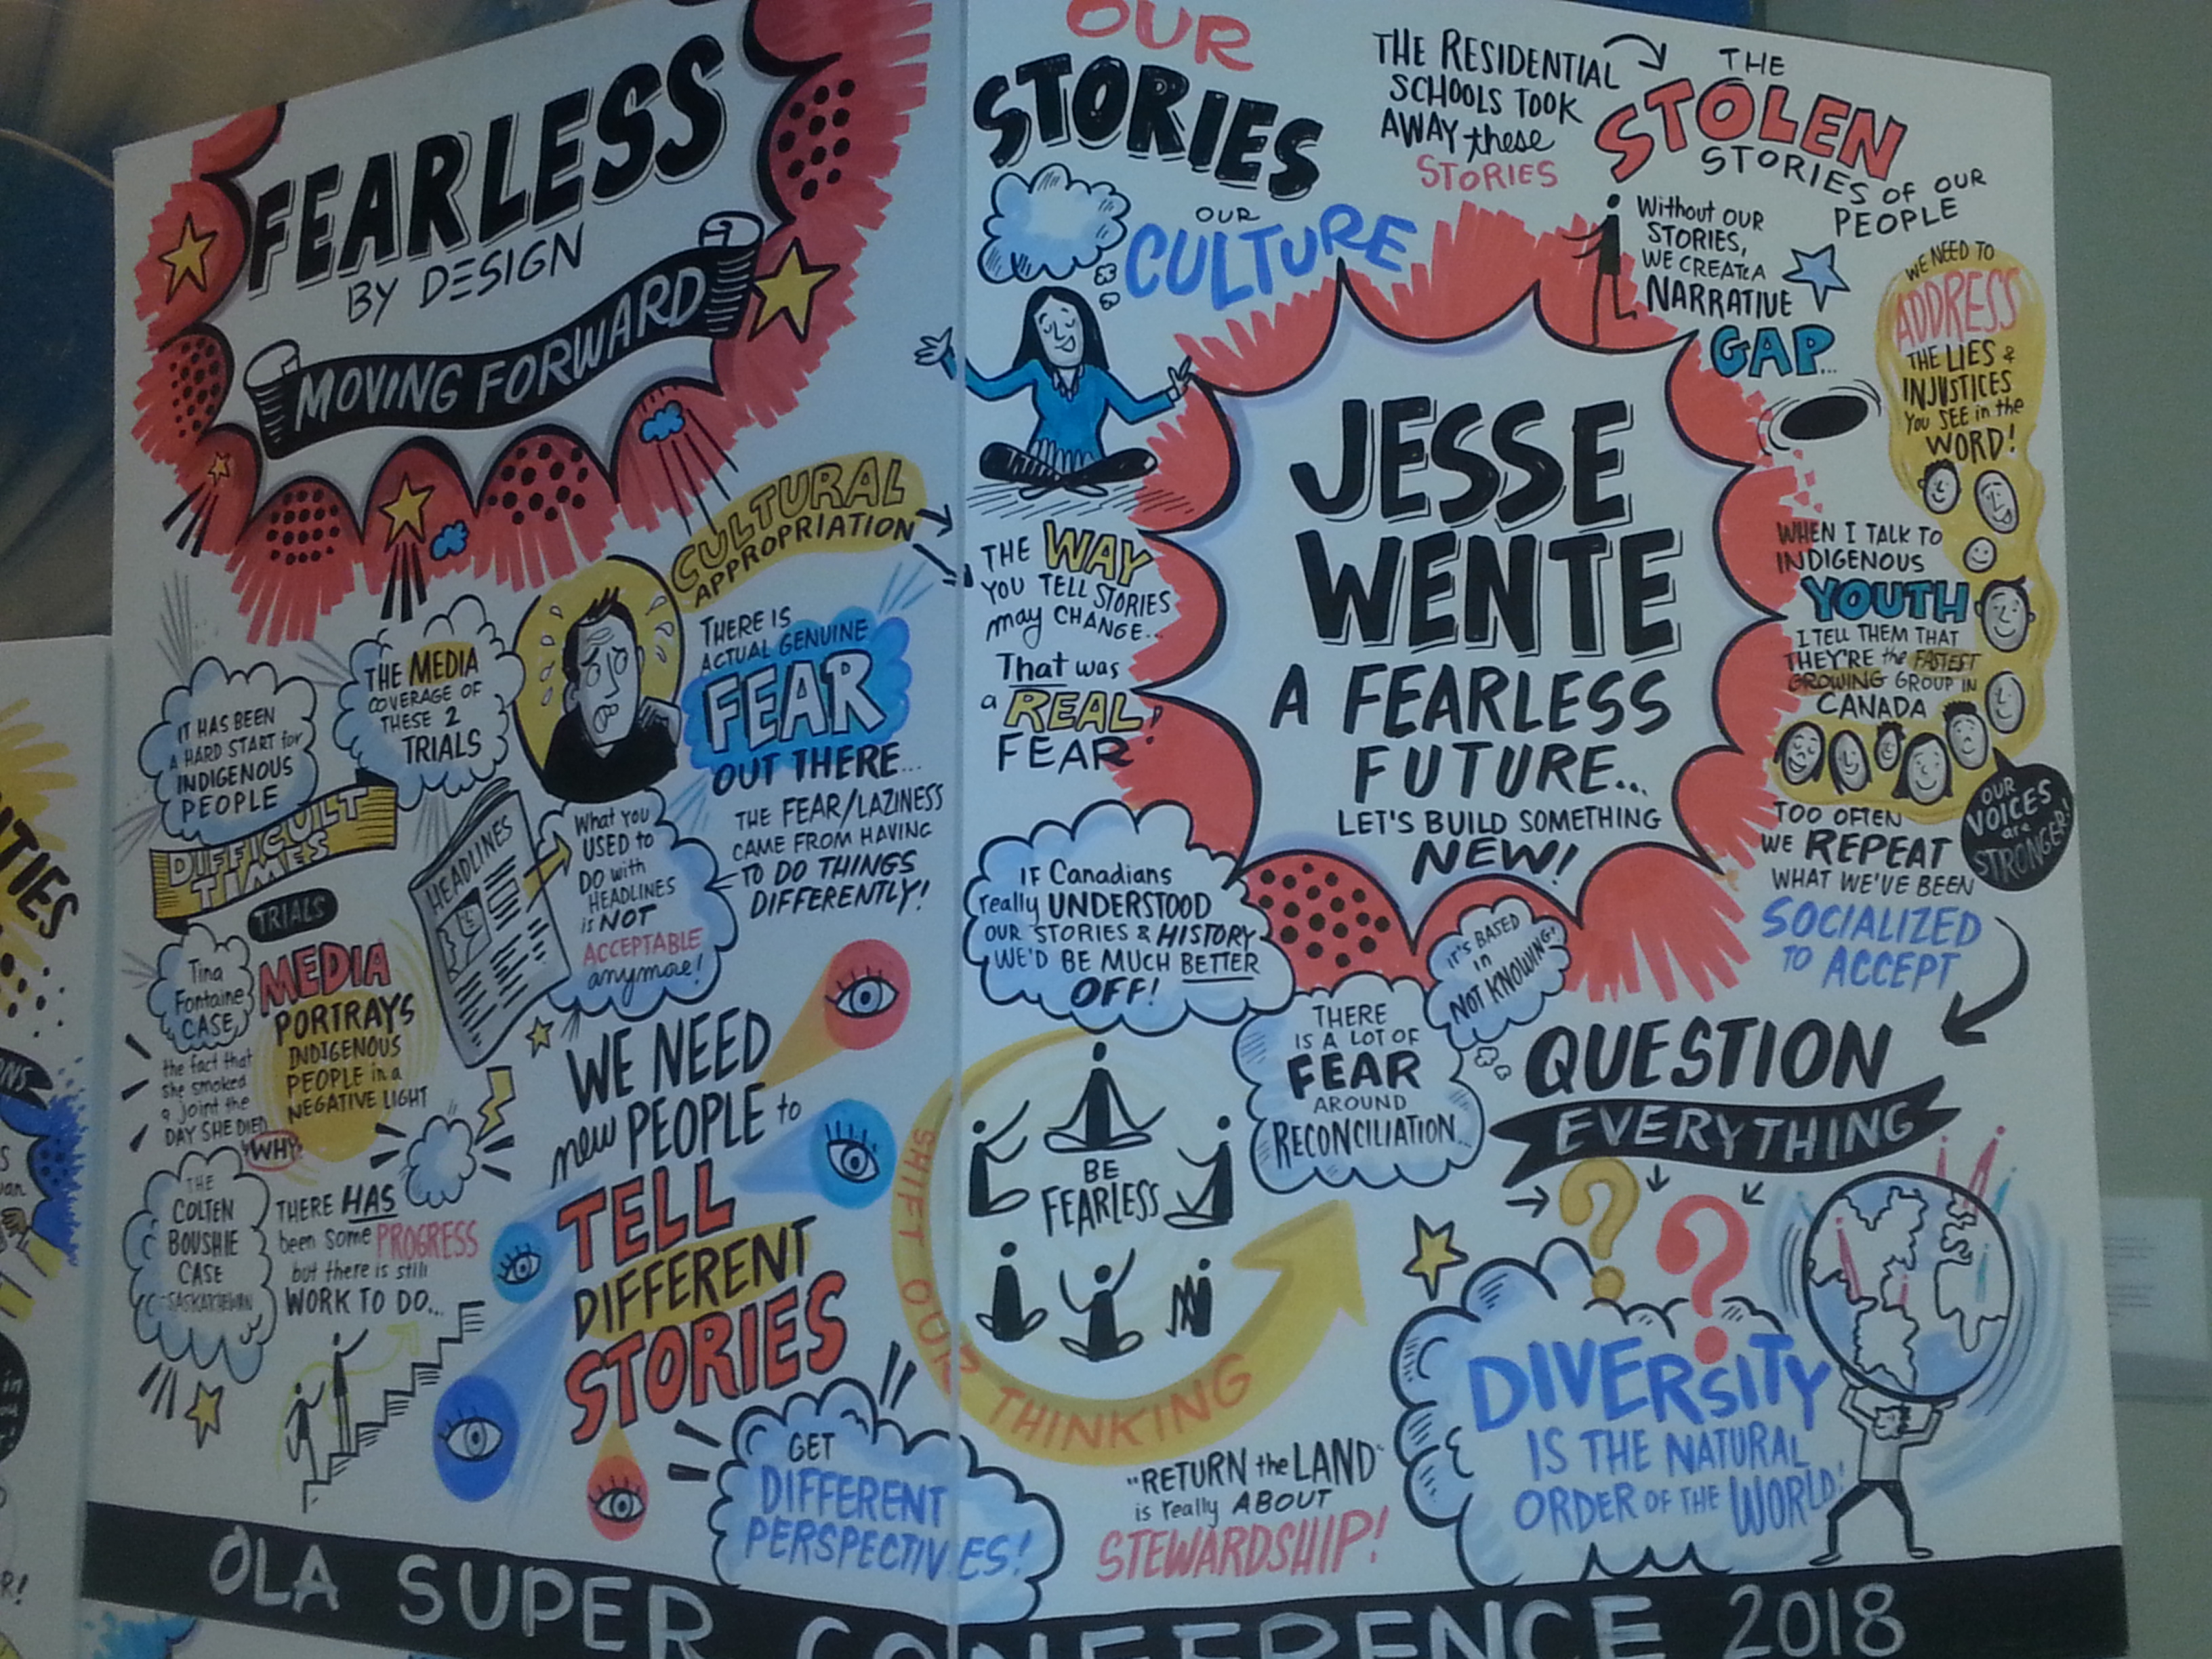 FEARLESS
BY DESIGN
MOVING FORWARD
CULTURAL
APPROPRIATION
IT HAS BEEN
A HARD START for
INDIGENOUS
PEOPLE
DIFFICULT
TIMES
THE MEDIA
COVERAGE OF
THESE 2
TRIALS
THERE IS
ACTUAL GENUINE
FEAR
OUT THERE...
THE FEAR/LAZINESS
CAME FROM HAVING
TO DO THINGS
DIFFERENTLY!
HEADLINES
What you
USED to
DO with
HEADLINES
is NOT
ACCEPTABLE
anymore!
TRIALS
Tina
Fontaine
CASE
the fact that
she smoked
a joint the
DAY SHE DIED
WHY?
MEDIA
PORTRAYS
INDIGENOUS
PEOPLE in a
NEGATIVE LIGHT
THE
COLTEN
BOUSHIE
CASE
SASKATCHEWAN
THERE HAS
been some PROGRESS
but there is still
WORK TO DO...
WE NEED
new PEOPLE to
TELL
DIFFERENT
STORIES
GET
DIFFERENT
PERSPECTIVES!
OUR
STORIES
OUR
CULTURE
THE RESIDENTIAL
SCHOOLS TOOK
AWAY these
STORIES
THE
STOLEN
STORIES OF OUR
PEOPLE
Without OUR
STORIES,
WE CREATE A
NARRATIVE
GAP...
WE NEED TO
ADDRESS
THE LIES &
INJUSTICES
YOU SEE in the
WORD!
THE WAY
YOU TELL STORIES
may CHANGE...
That was
a REAL
FEAR!
JESSE
WENTE
A FEARLESS
FUTURE...
LET'S BUILD SOMETHING
NEW!
WHEN I TALK TO
INDIGENOUS
YOUTH
I TELL THEM THAT
THEY'RE the FASTEST
GROWING GROUP IN
CANADA
OUR
VOICES
are
STRONGER!
TOO OFTEN
WE REPEAT
WHAT WE'VE BEEN
SOCIALIZED
TO ACCEPT
QUESTION
EVERYTHING
IF Canadians
really UNDERSTOOD
OUR STORIES & HISTORY
WE'D BE MUCH BETTER
OFF!
IT'S BASED
in
NOT KNOWING!
THERE
IS A LOT OF
FEAR
AROUND
RECONCILIATION...
BE
FEARLESS
SHIFT OUR THINKING
"RETURN the LAND"
is really ABOUT
STEWARDSHIP!
DIVERSITY
IS THE NATURAL
ORDER OF THE WORLD!
OLA SUPER CONFERENCE 2018